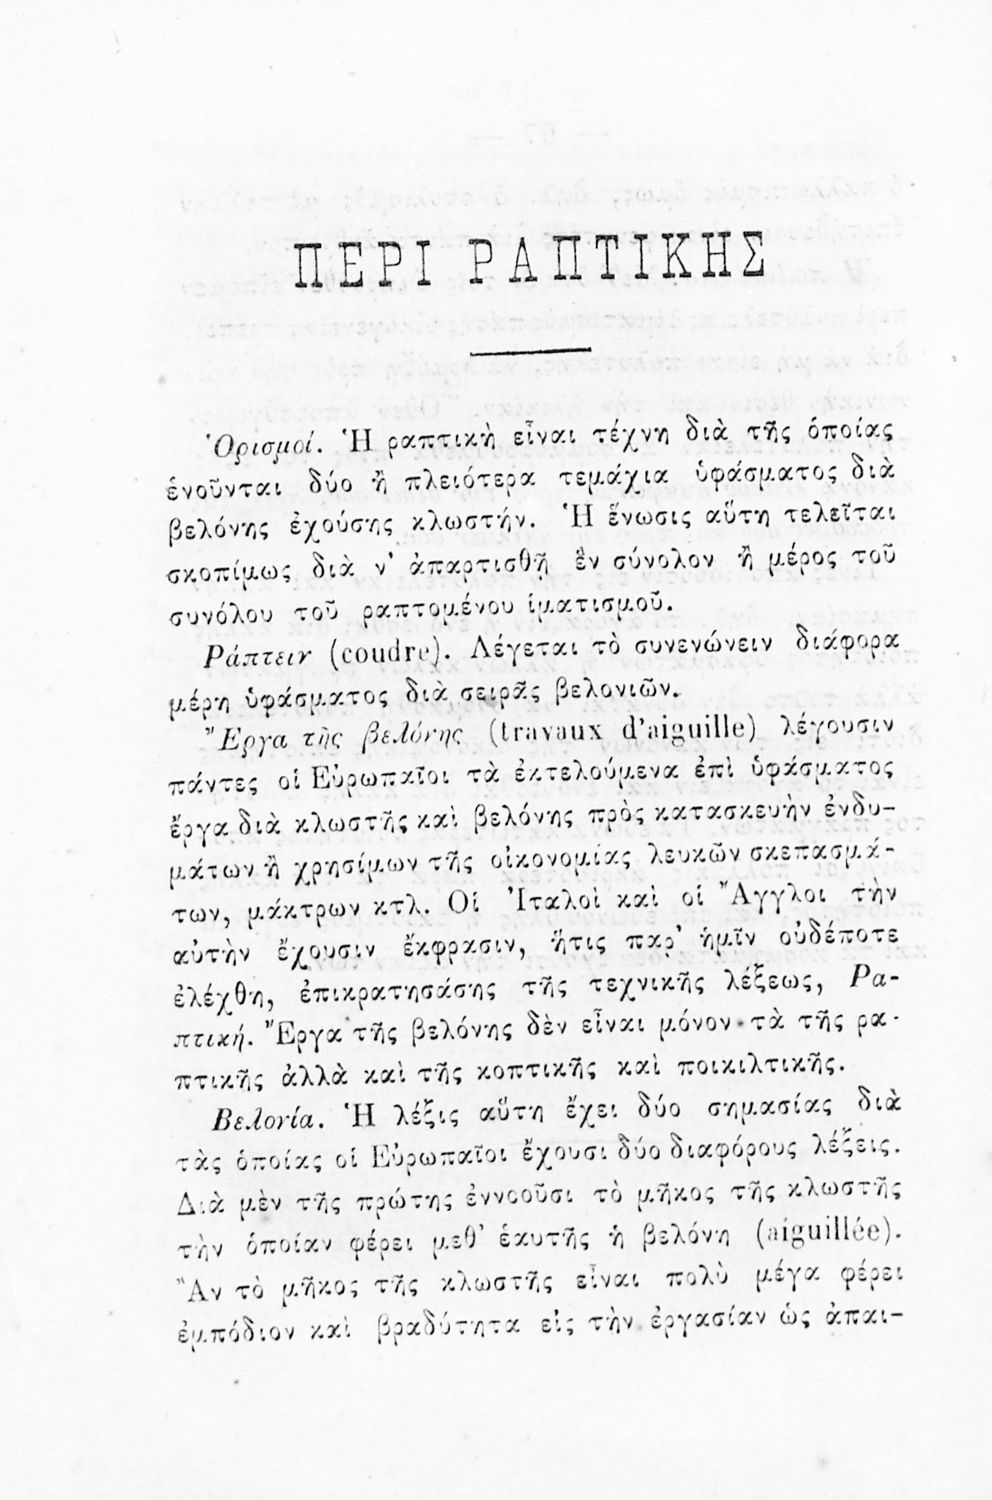 ΠΕΡΙ ΡΑΠΤΙΚΗΣ
Ὁρισμοί. Ἡ ραπτικὴ εἶναι τέχνη διὰ τῆς ὁποίας
ἑνοῦνται δύο ἢ πλειότερα τεμάχια ὑφάσματος διὰ
βελόνης ἐχούσης κλωστήν. Ἡ ἕνωσις αὕτη τελεῖται
σκοπίμως διὰ ν' ἀπαρτισθῇ ἓν σύνολον ἢ μέρος τοῦ
συνόλου τοῦ ραπτομένου ἱματισμοῦ.
Ράπτειν (coudre). Λέγεται τὸ συνενώνειν διάφορα
μέρη ὑφάσματος διὰ σειρᾶς βελονιῶν.
Ἔργα τῆς βελόνης (travaux d'aiguille) λέγουσιν
πάντες οἱ Εὐρωπαῖοι τὰ ἐκτελούμενα ἐπὶ ὑφάσματος
ἔργα διὰ κλωστῆς καὶ βελόνης πρὸς κατασκευὴν ἐνδυ-
μάτων ἢ χρησίμων τῆς οἰκονομίας λευκῶν σκεπασμά-
των, μάκτρων κτλ. Οἱ Ἰταλοὶ καὶ οἱ Ἄγγλοι τὴν
αὐτὴν ἔχουσιν ἔκφρασιν, ἥτις παρ' ἡμῖν οὐδέποτε
ἐλέχθη, ἐπικρατησάσης τῆς τεχνικῆς λέξεως, Ρα-
πτική. Ἔργα τῆς βελόνης δὲν εἶναι μόνον τὰ τῆς ρα-
πτικῆς ἀλλὰ καὶ τῆς κοπτικῆς καὶ ποικιλτικῆς.
Βελονία. Ἡ λέξις αὕτη ἔχει δύο σημασίας διὰ
τὰς ὁποίας οἱ Εὐρωπαῖοι ἔχουσι δύο διαφόρους λέξεις.
Διὰ μὲν τῆς πρώτης ἐννοοῦσι τὸ μῆκος τῆς κλωστῆς
τὴν ὁποίαν φέρει μεθ' ἑαυτῆς ἡ βελόνη (aiguillée).
Ἂν τὸ μῆκος τῆς κλωστῆς εἶναι πολὺ μέγα φέρει
ἐμπόδιον καὶ βραδύτητα εἰς τὴν ἐργασίαν ὡς ἀπαι-